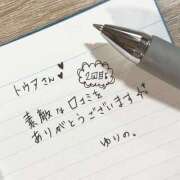 トウアさん♥
2回目!
素敵な口コミを
ありがとうございますm
ゆりの。